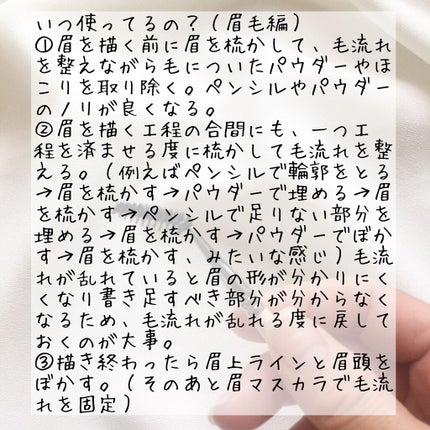 いつ使ってるの？（眉毛編）
①眉を描く前に眉を梳かして、毛流れ
を整えながら毛についたパウダーやほ
こりを取り除く。ペンシルやパウダー
のノリが良くなる。
②眉を描く工程の合間にも、一つ工
程を済ませる度に梳かして毛流れを整
える。（例えばペンシルで輪郭をとる
→眉を梳かす→パウダーで埋める→眉
を梳かす→ペンシルで足りない部分を
埋める→眉を梳かす→パウダーでぼか
す→眉を梳かす、みたいな感じ）毛流
れが乱れていると眉の形が分かりにく
くなり書き足すべき部分が分からなく
なるため、毛流れが乱れる度に戻して
おくのが大事。
③描き終わったら眉上ラインと眉頭を
ぼかす。（そのあと眉マスカラで毛流
れを固定）